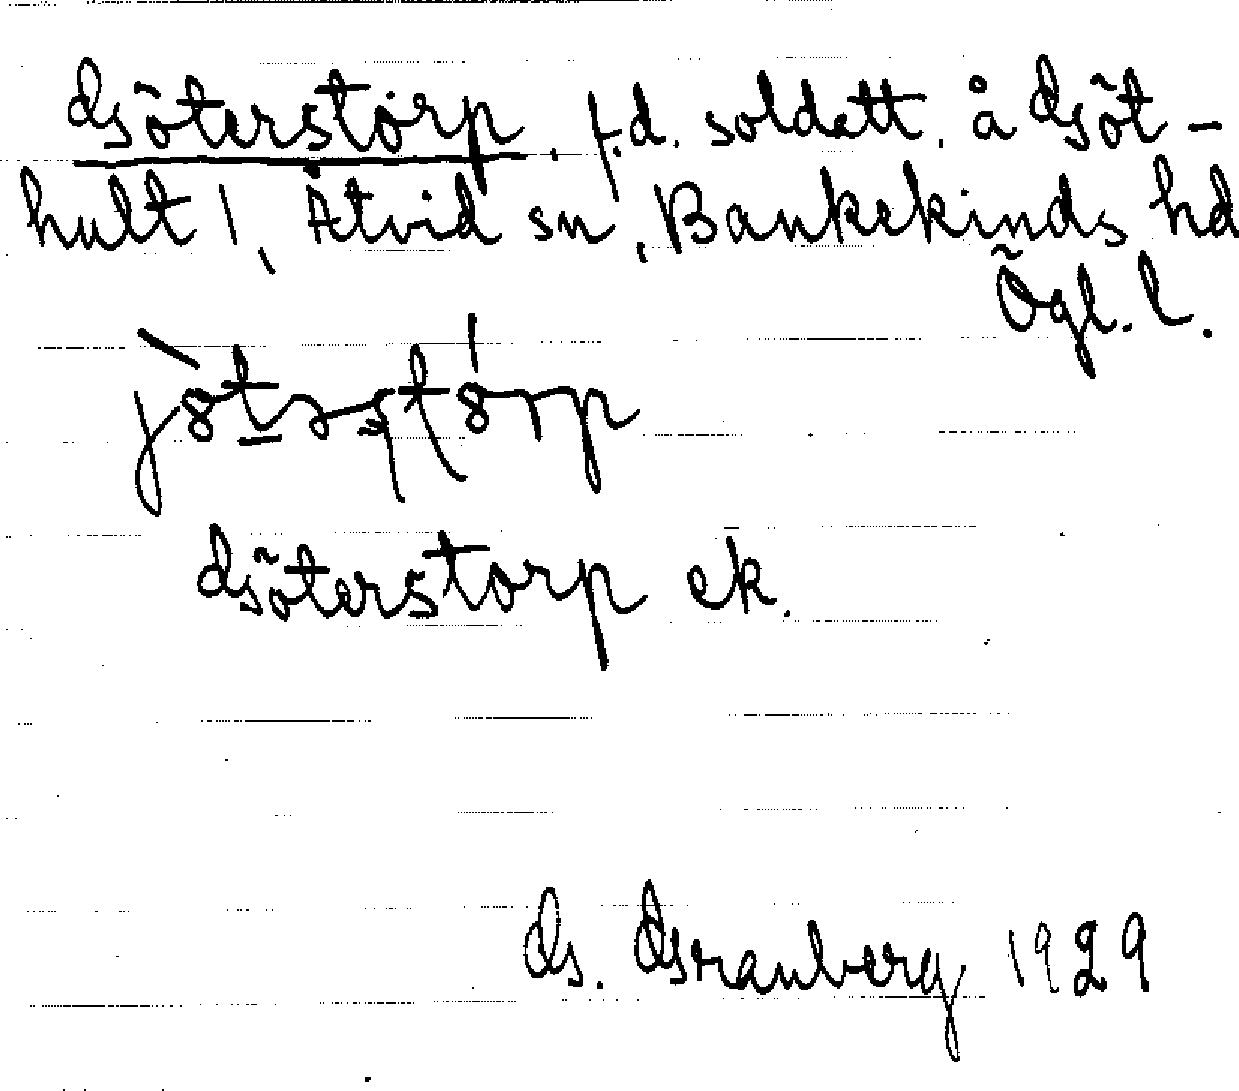 Göterstorp, f.d. soldatt. å Göt-
hult 1, Åtvid sn, Bankekinds hd
Ögl. l.
Göterstorp ek.
G. Granberg 1929